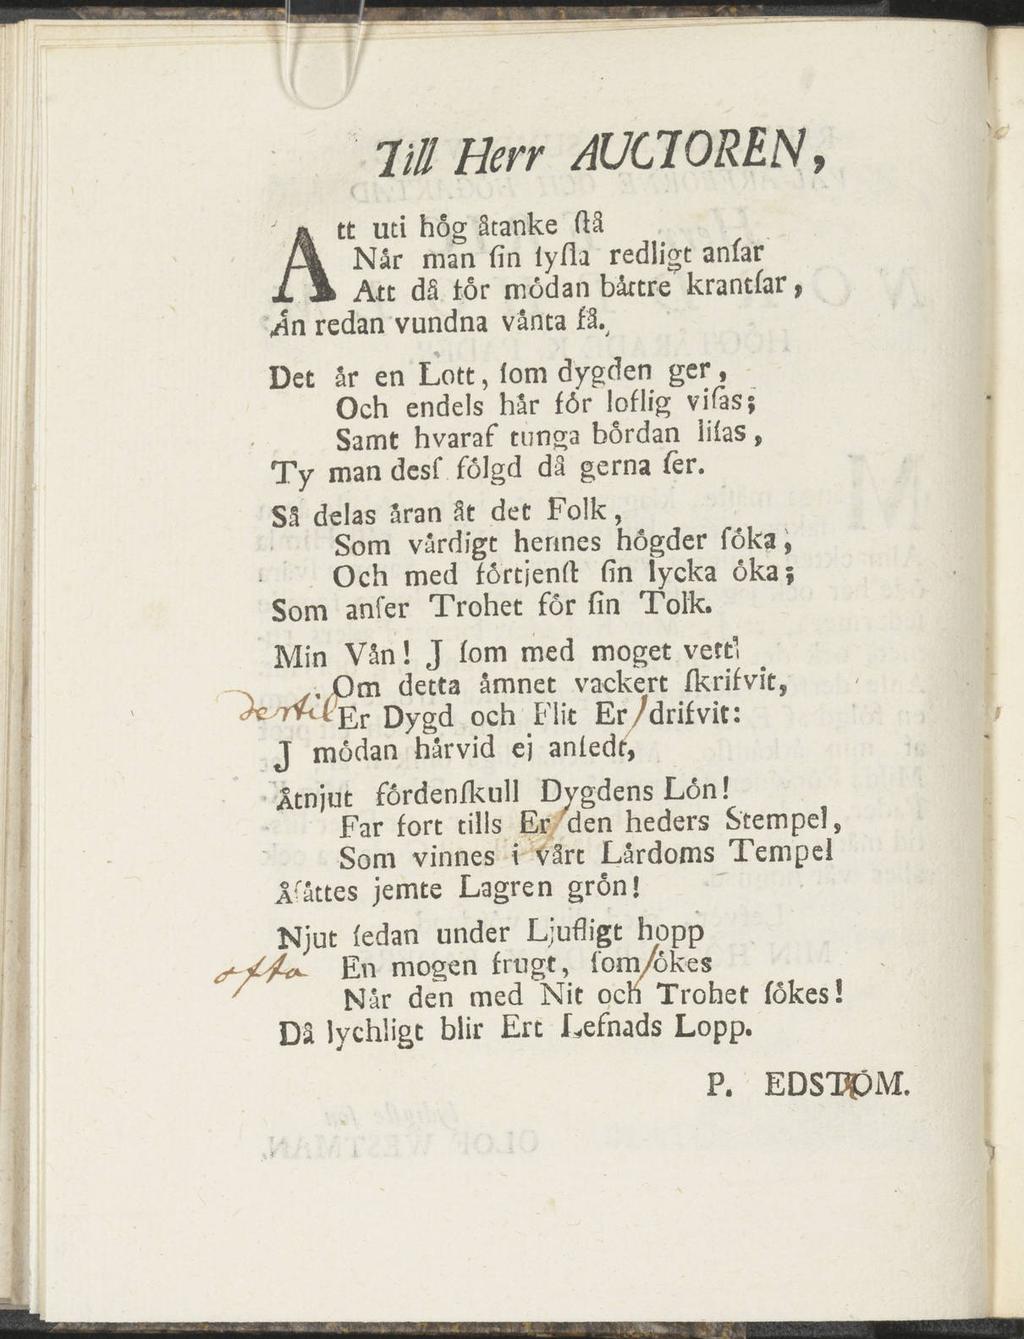 Till Herr AUCTOREN,
Att uti hôg åtanke ſtå
Når man ſin ſyſla redligt anſar
Att då fôr môdan båttre krantſar,
Ån redan vundna vånta få.
Det år en Lott, ſom dygden ger,
Och endels hår fôr loflig viſas;
Samt hvaraf tunga bôrdan liſas,
Ty man desſ fôlgd då gerna ſer.
Så delas åran åt det Folk,
Som vårdigt hennes hôgder ſôka,
Och med fôrtjenſt ſin lycka ôka;
Som anſer Trohet fôr ſin Tolk.
Min Vån! J ſom med moget vett
Om detta åmnet vackert ſkrifvit,
dertil Er Dygd och Flit Er/drifvit:
J môdan hårvid ej anſedt,
Åtnjut fôrdenſkull Dygdens Lôn!
Far fort tills Er den heders Stempel,
Som vinnes i vårt Lårdoms Tempel
Åſåttes jemte Lagren grôn!
Njut ſedan under Ljufligt hopp
ofta En mogen frugt, ſom/ôkes
Når den med Nit och Trohet ſôkes!
Då lychligt blir Ert Lefnads Lopp.
P. EDSTRÔM.
OLOF WESTMAN.